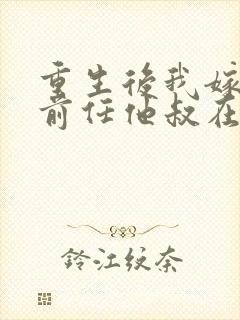 重生後我嫁
前任他叔在
鈴江紋奈